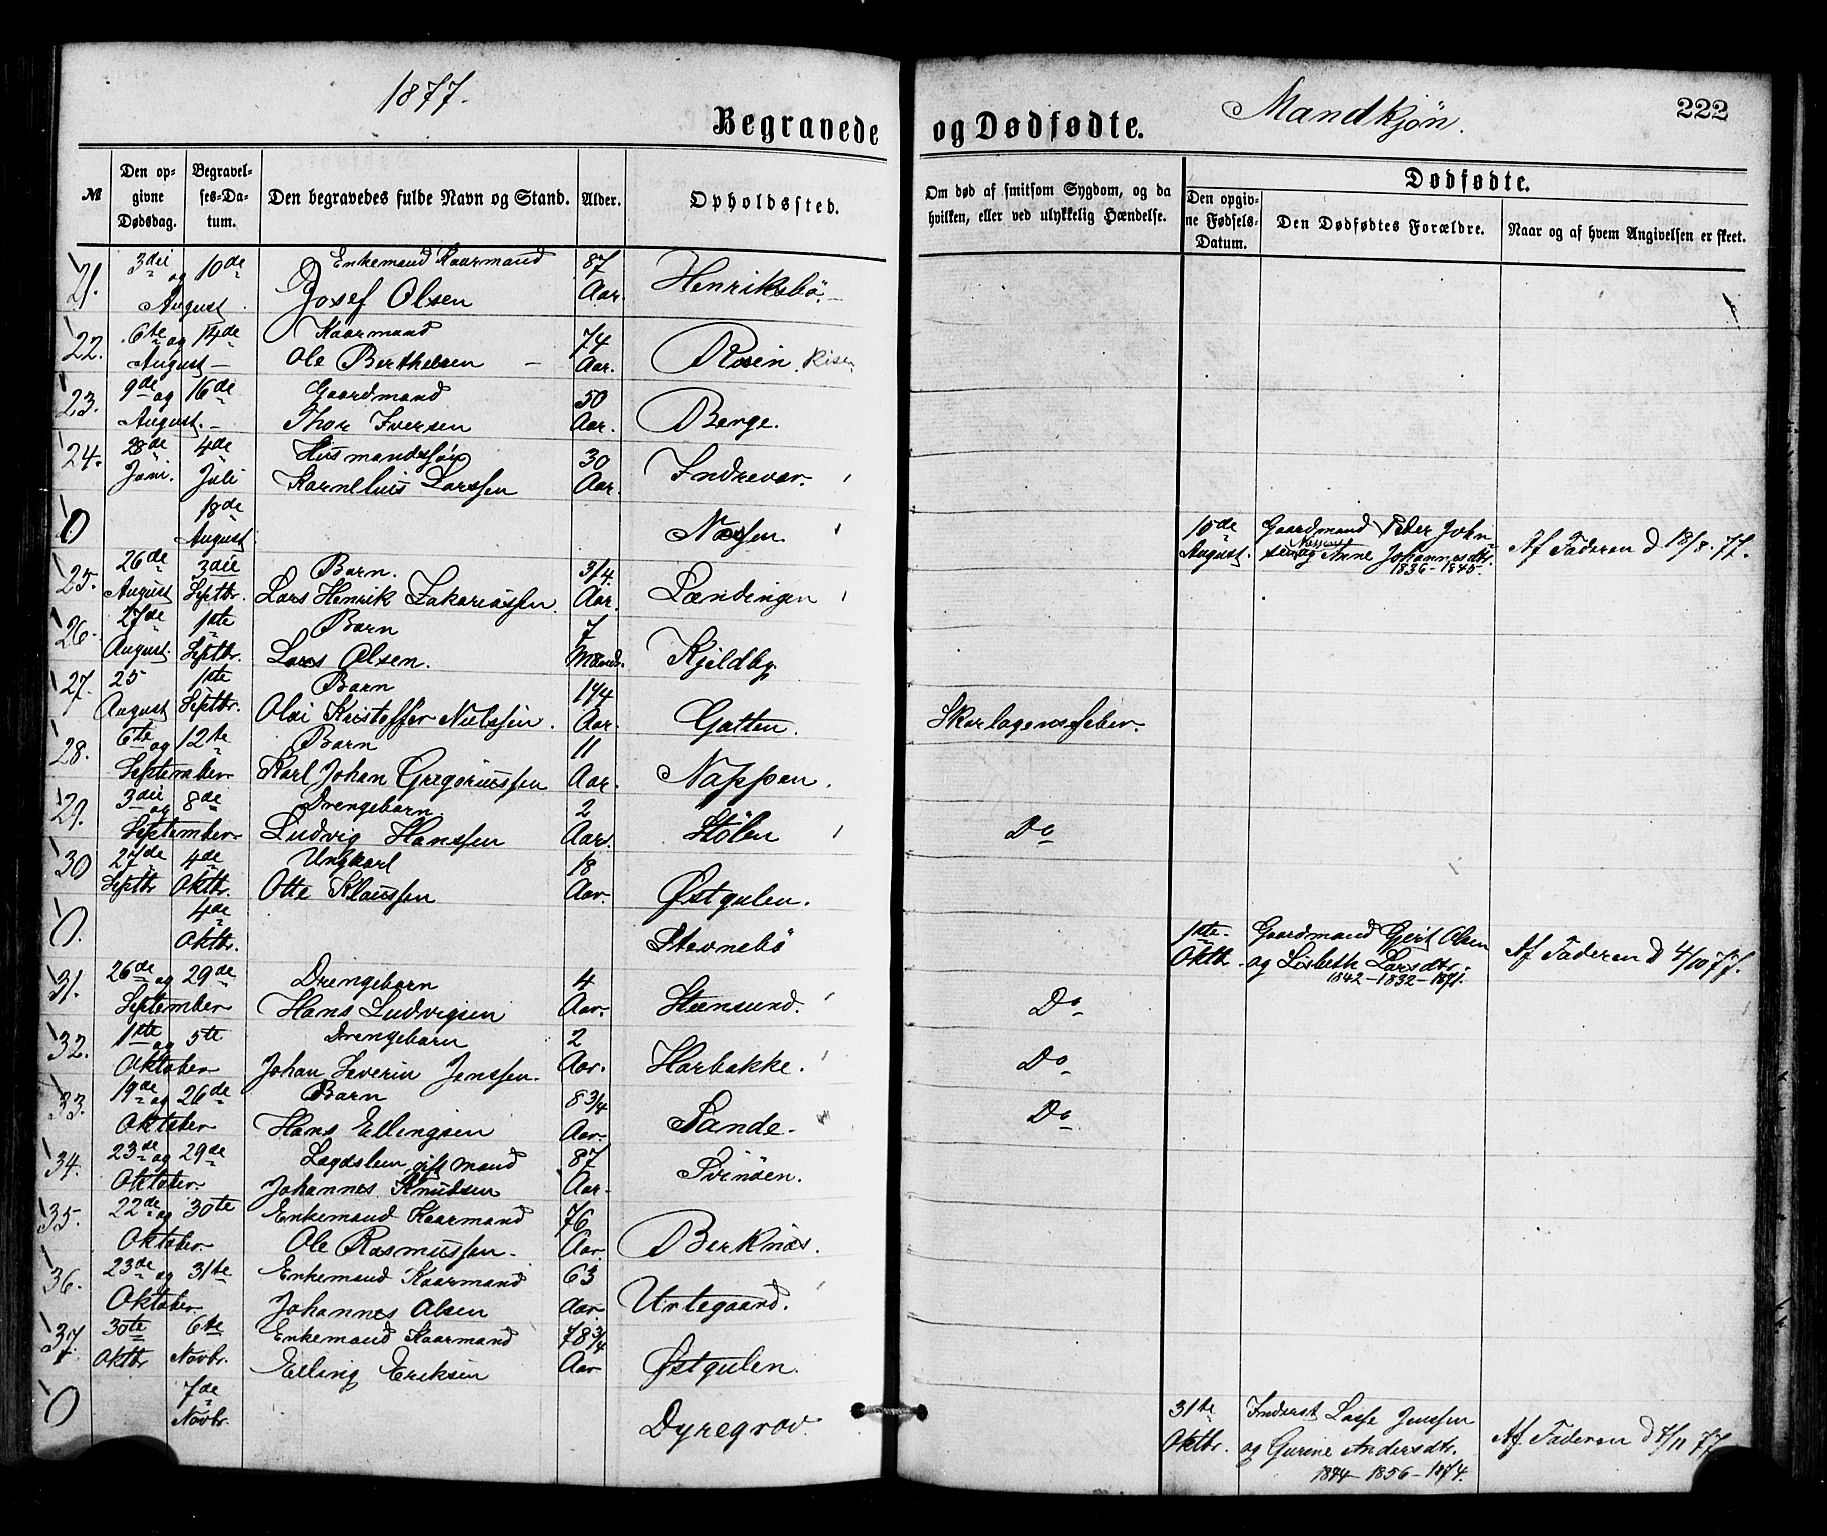 1877.
Begravede og Dødfødte.
Mandkjøn.
222
№
Den opgivne Dødsdag.
Begravelses-Datum.
Den begravedes fulde Navn og Stand.
Alder.
Opholdssted.
Om død af smitsom Sygdom, og da hvilken, eller ved ulykkelig Hændelse.
Dødfødte.
Den opgivne Fødsels-Datum.
Den Dødfødtes Forældre.
Naar og af hvem Angivelsen er skeet.
21. 3die og 10de Enkemand Kaarmand 87
August Josef Olsen Aar. Henriksbø.
22. 6te og 14de Kaarmand 74
August Ole Berthelsen Aar. Risin Risn
23. 9de og 16de Gaardmand 50
August. Thor Iversen Aar. Berge.
24. 28de 4de Husmandssøn 30
Juni. Juli Kornelius Larssen Aar. Indrevær.
0 18de
August. Næssen
10de Gaardmand Peder John-
August. sen og Anne Johannesdtr. Af Faderen d 18/8. 77.
1836-1845
25. 26de 3die Barn. 3/4
August Septbr. Lars Henrik Sakariassen. Aar. Lændingen
26. 27de 1ste Barn 7
August. Septbr. Lars Olsen. Maand. Kjeldby
27. 25 1ste Barn 1 1/4
August Septbr. Olai Kristoffer Nielssen. Aar. Gotten. Skarlagensfeber.
28. 6te og 12te Barn 11
September Karl Johan Gregoriussen Aar. Nappen.
29. 3die og 8de Drengebarn 2
September Ludvig Hanssen Aar. Stølen Do
30 27de 4de Ungkarl 18
Septbr Oktbr. Otte Klaussen Aar. Østgulen.
0. 4de
Oktbr. Stevnebø
1ste Gaardmand Gjert Olsen
Oktbr. og Lisbeth Larsdtr. Af Faderen d 4/10 77.
1842-1832-1871.
31. 26de og 29de Drengebarn 4
September Hans Ludvigsen Aar. Steensund. Do
32. 1ste og 5te Drengebarn 2
Oktober Johan Severin Jenssen. Aar. Harbakke. Do
33. 19de og 26de Barn 8 3/4
Oktober Hans Ellingsen Aar. Sande. Do
34. 23de og 29de Lægdslem, gift Mand 87
Oktober. Johannes Knudsen Aar. Svinøen.
35. 22de og 30te Enkemand Kaarmand 76
Oktober. Ole Rasmussen. Aar. Berknæs.
36. 23de og 31te Enkemand Kaarmand 63
Oktober. Johannes Olsen Aar. Urtegaard.
37. 30te 6te Enkemand Kaarmand 78 3/4
Oktbr Novbr. Elling Eriksen Aar Østgulen.
0 7de
Novbr. Dyregrov.
31te Inderst Lasse Jenssen
Oktbr. og Gurine Andersdtr. Af Faderen d 7/11 77
1844-1856-1874.